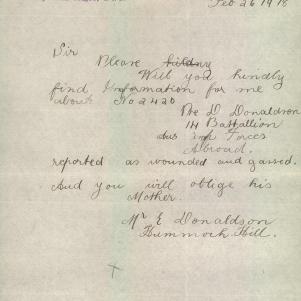 Feb 26 1918
Sir
Please
Will you kindly
find Information for me
about No 2420
Pte D Donaldson
14 Battallion
Aus Forces
Abroad.
reported as wounded and gassed.
And you will oblige his
Mother.
E Donaldson
Hummock Hill.